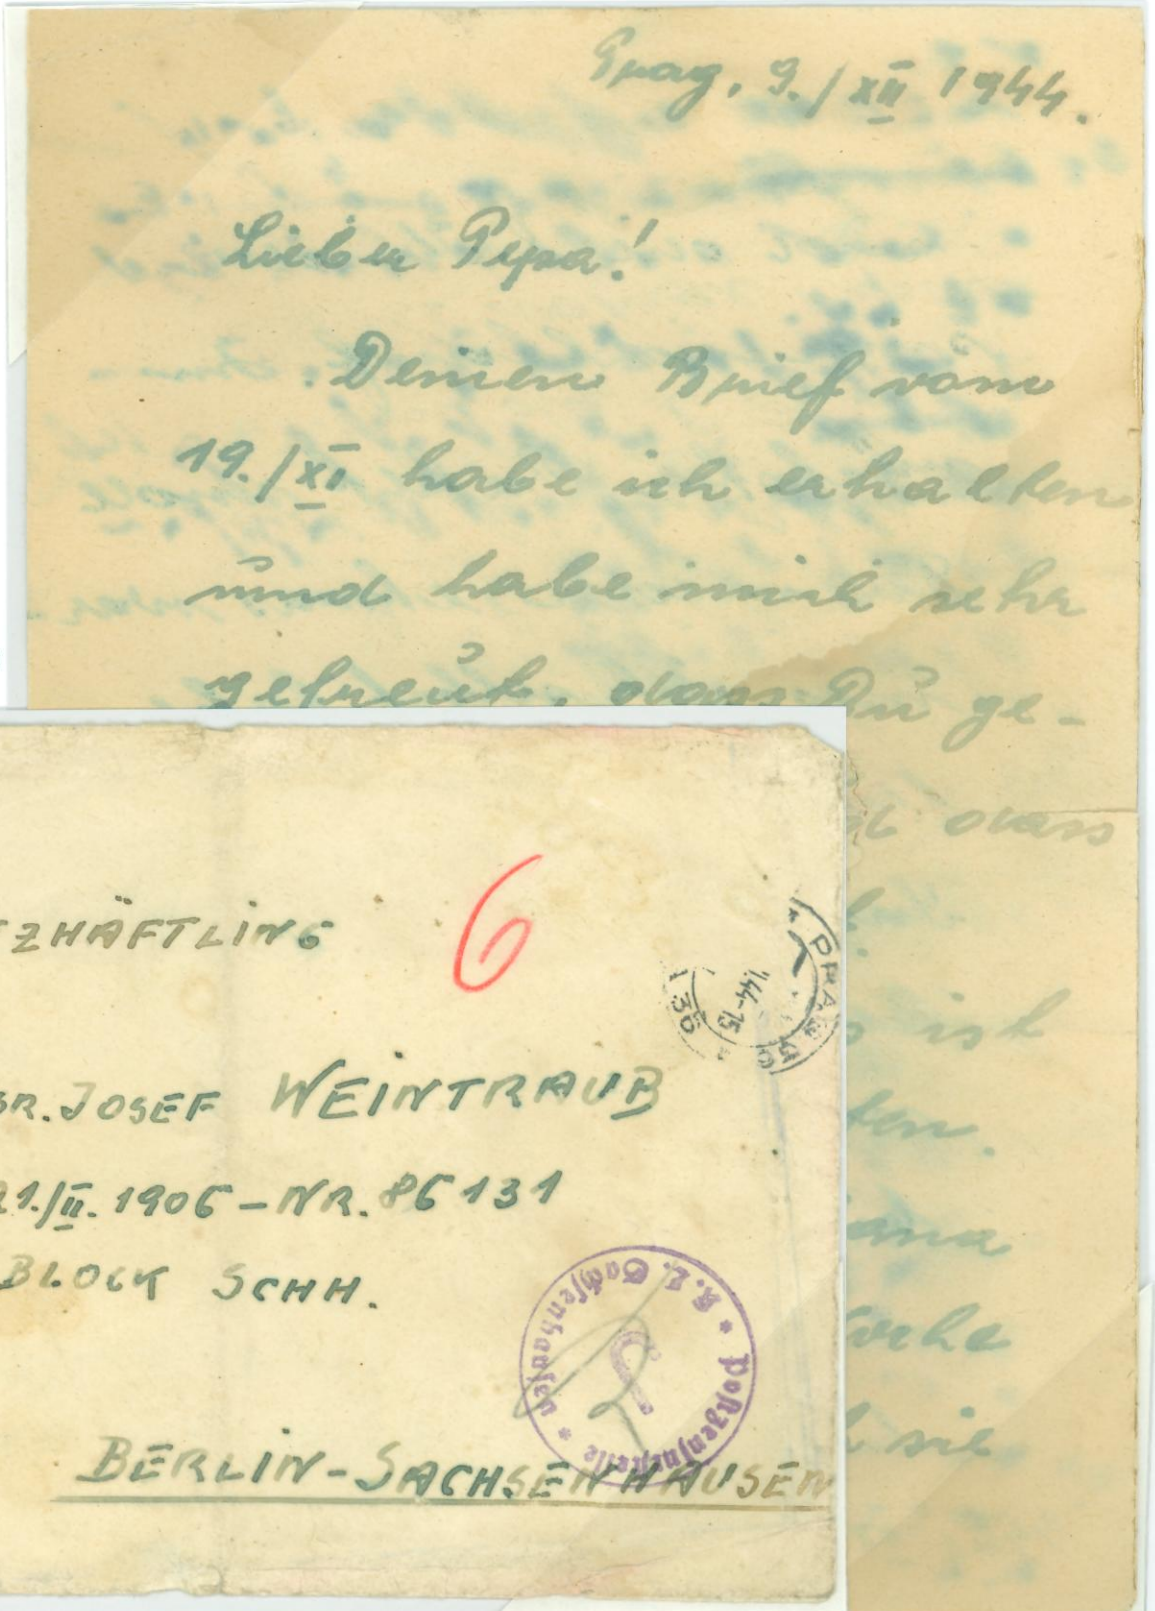 Prag, 9./XII 1944.
Lieber Pepa!
Deinen Brief vom
19./XI habe ich erhalten
und habe mich sehr
gefreut, dass Du ge-
dass
ist
ten.
sie
6
TZHÄFTLING
DR. JOSEF WEINTRAUB
21./II. 1906 - NR. 86131
BLOCK SCHH.
BERLIN-SACHSENHAUSEN
PRA
36
.44-15
Postzensurstelle * K. L. Sachsenhausen *